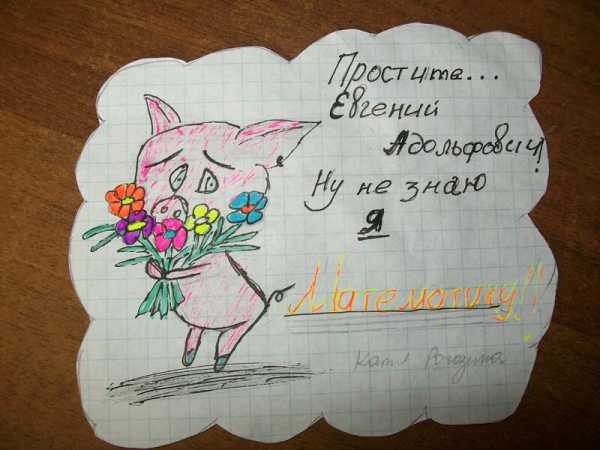 Простите...
Евгений
Адольфович!
Ну не знаю
я
Математику!!
Катя